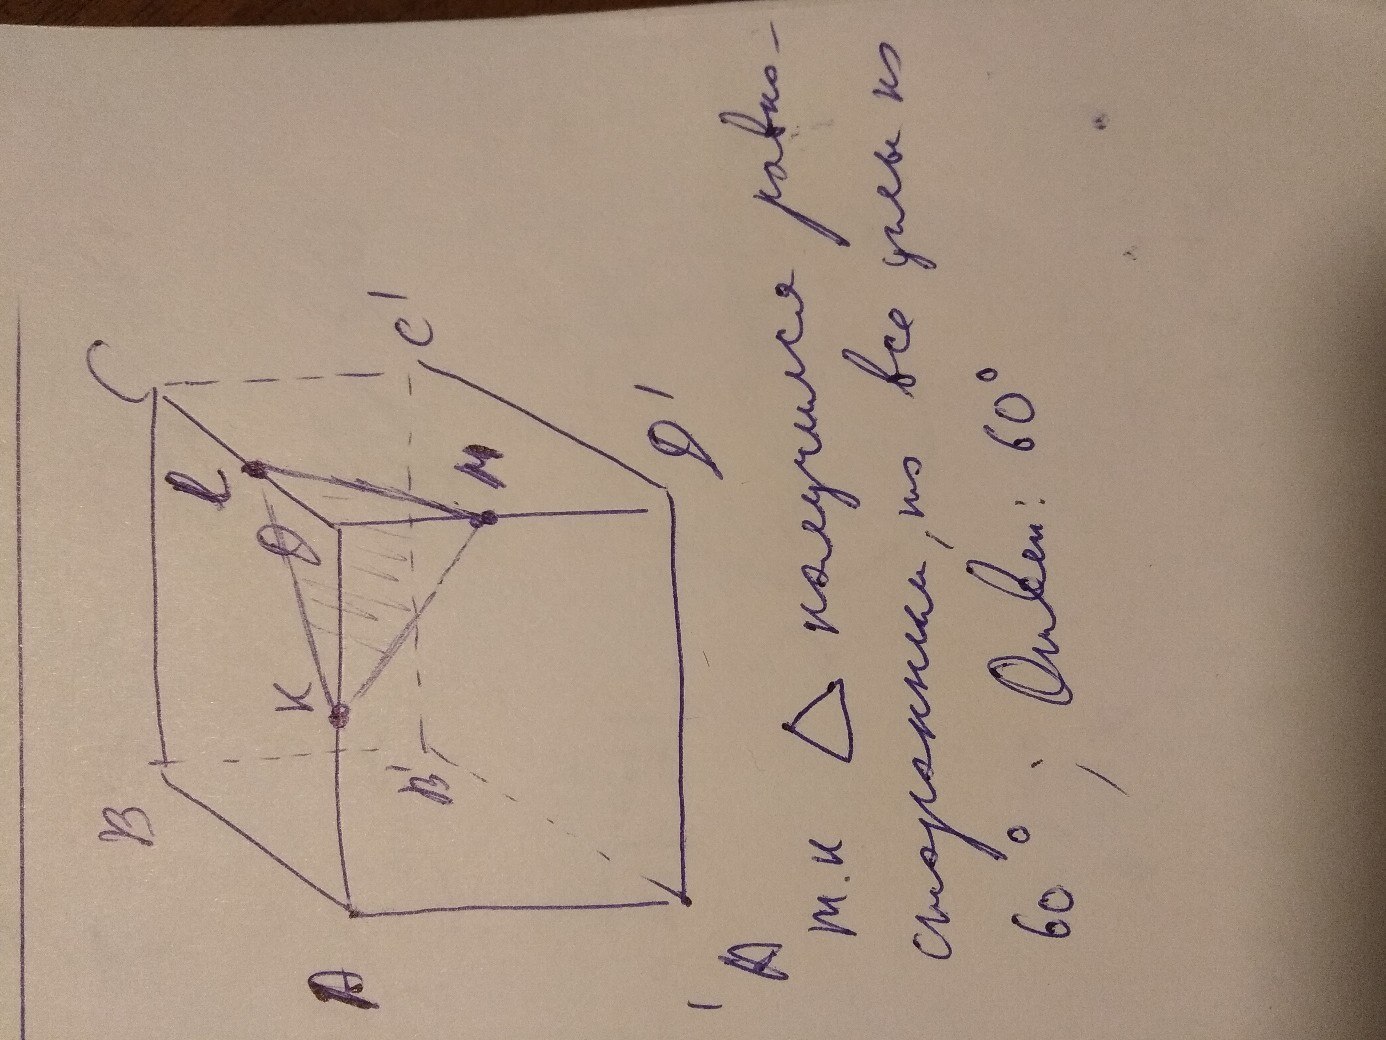 B
C
A
K
D
L
B'
C'
M
A'
D'
т.к △ получился равно-
сторонним, то все углы по
60°. Ответ: 60°